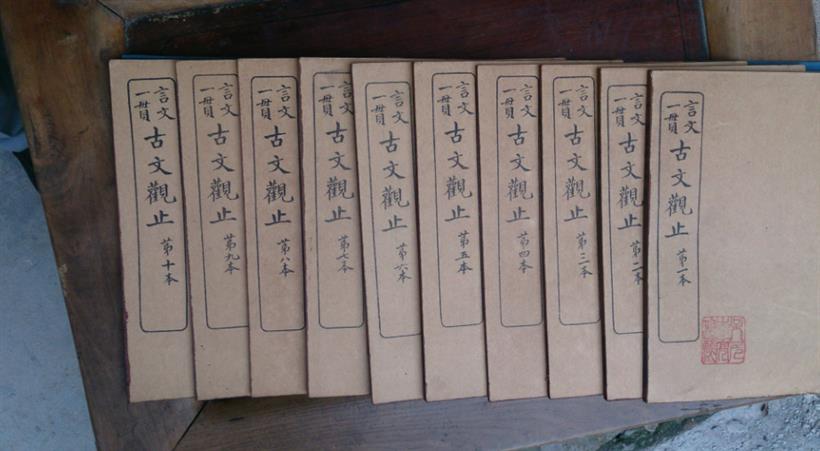 言文
一貫
古文觀止
第一本
言文
一貫
古文觀止
第二本
言文
一貫
古文觀止
第三本
言文
一貫
古文觀止
第四本
言文
一貫
古文觀止
第五本
言文
一貫
古文觀止
第六本
言文
一貫
古文觀止
第七本
言文
一貫
古文觀止
第八本
言文
一貫
古文觀止
第九本
言文
一貫
古文觀止
第十本